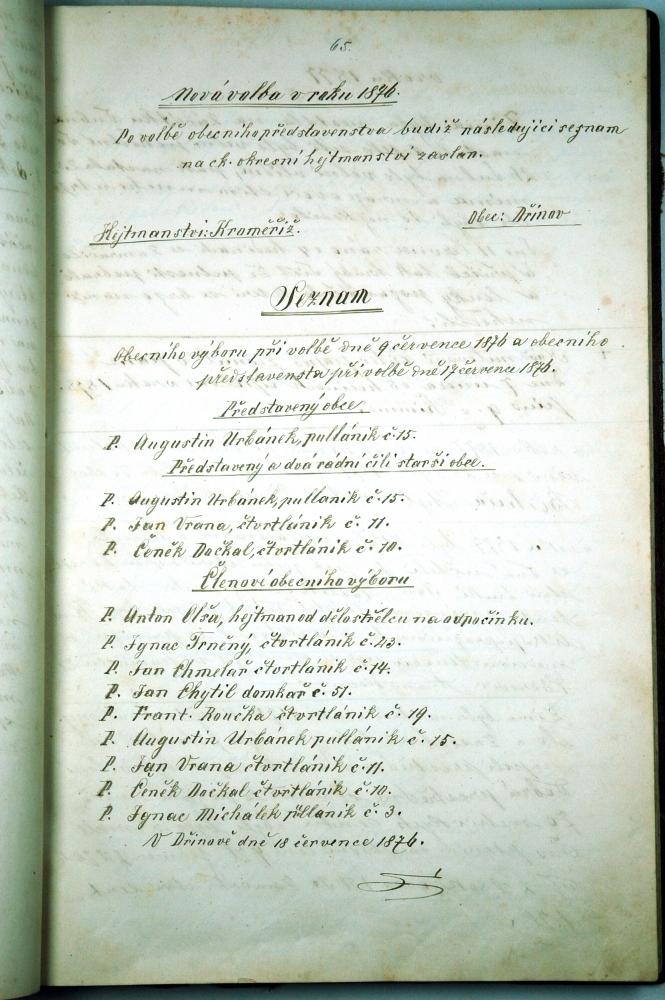 65.
Nová volba v roku 1876.
Po volbě obecního představenstva budiž následující seznam
na ck. okresní hejtmanství zaslan.
Hejtmanství: Kroměříž.
Obec: Dřínov
Seznam
Obecního výboru při volbě dně 9 července 1876 a obecního
představensta při volbě dně 17 července 1876.
Představený obce,
P. Augustin Urbánek, pullánik č. 15.
Představený a dvá rádní čili starší obec.
P. Augustin Urbánek, pullanik č. 15.
P. Jan Vrana, čtvrtlánik č. 11.
P. Čeněk Dočkal, čtvrtlánik č. 10.
Členové obecního výboru
P. Anton Olša, hejtman od dělostřelcu na odpočinku.
P. Ignac Trněný, čtvrtlánik č. 23.
P. Jan Chmelař čtvrtlánik č. 14.
P. Jan Chytil domkař č. 51.
P. Frant. Roučka čtvrtlánik č. 19.
P. Augustin Urbánek pullánik č. 15.
P. Jan Vrana čtvrtlánik č. 11.
P. Čeněk Dočkal čtvrtlánik č. 10.
P. Ignac Michálek pullánik č. 3.
V Dřínově dně 18 července 1876.